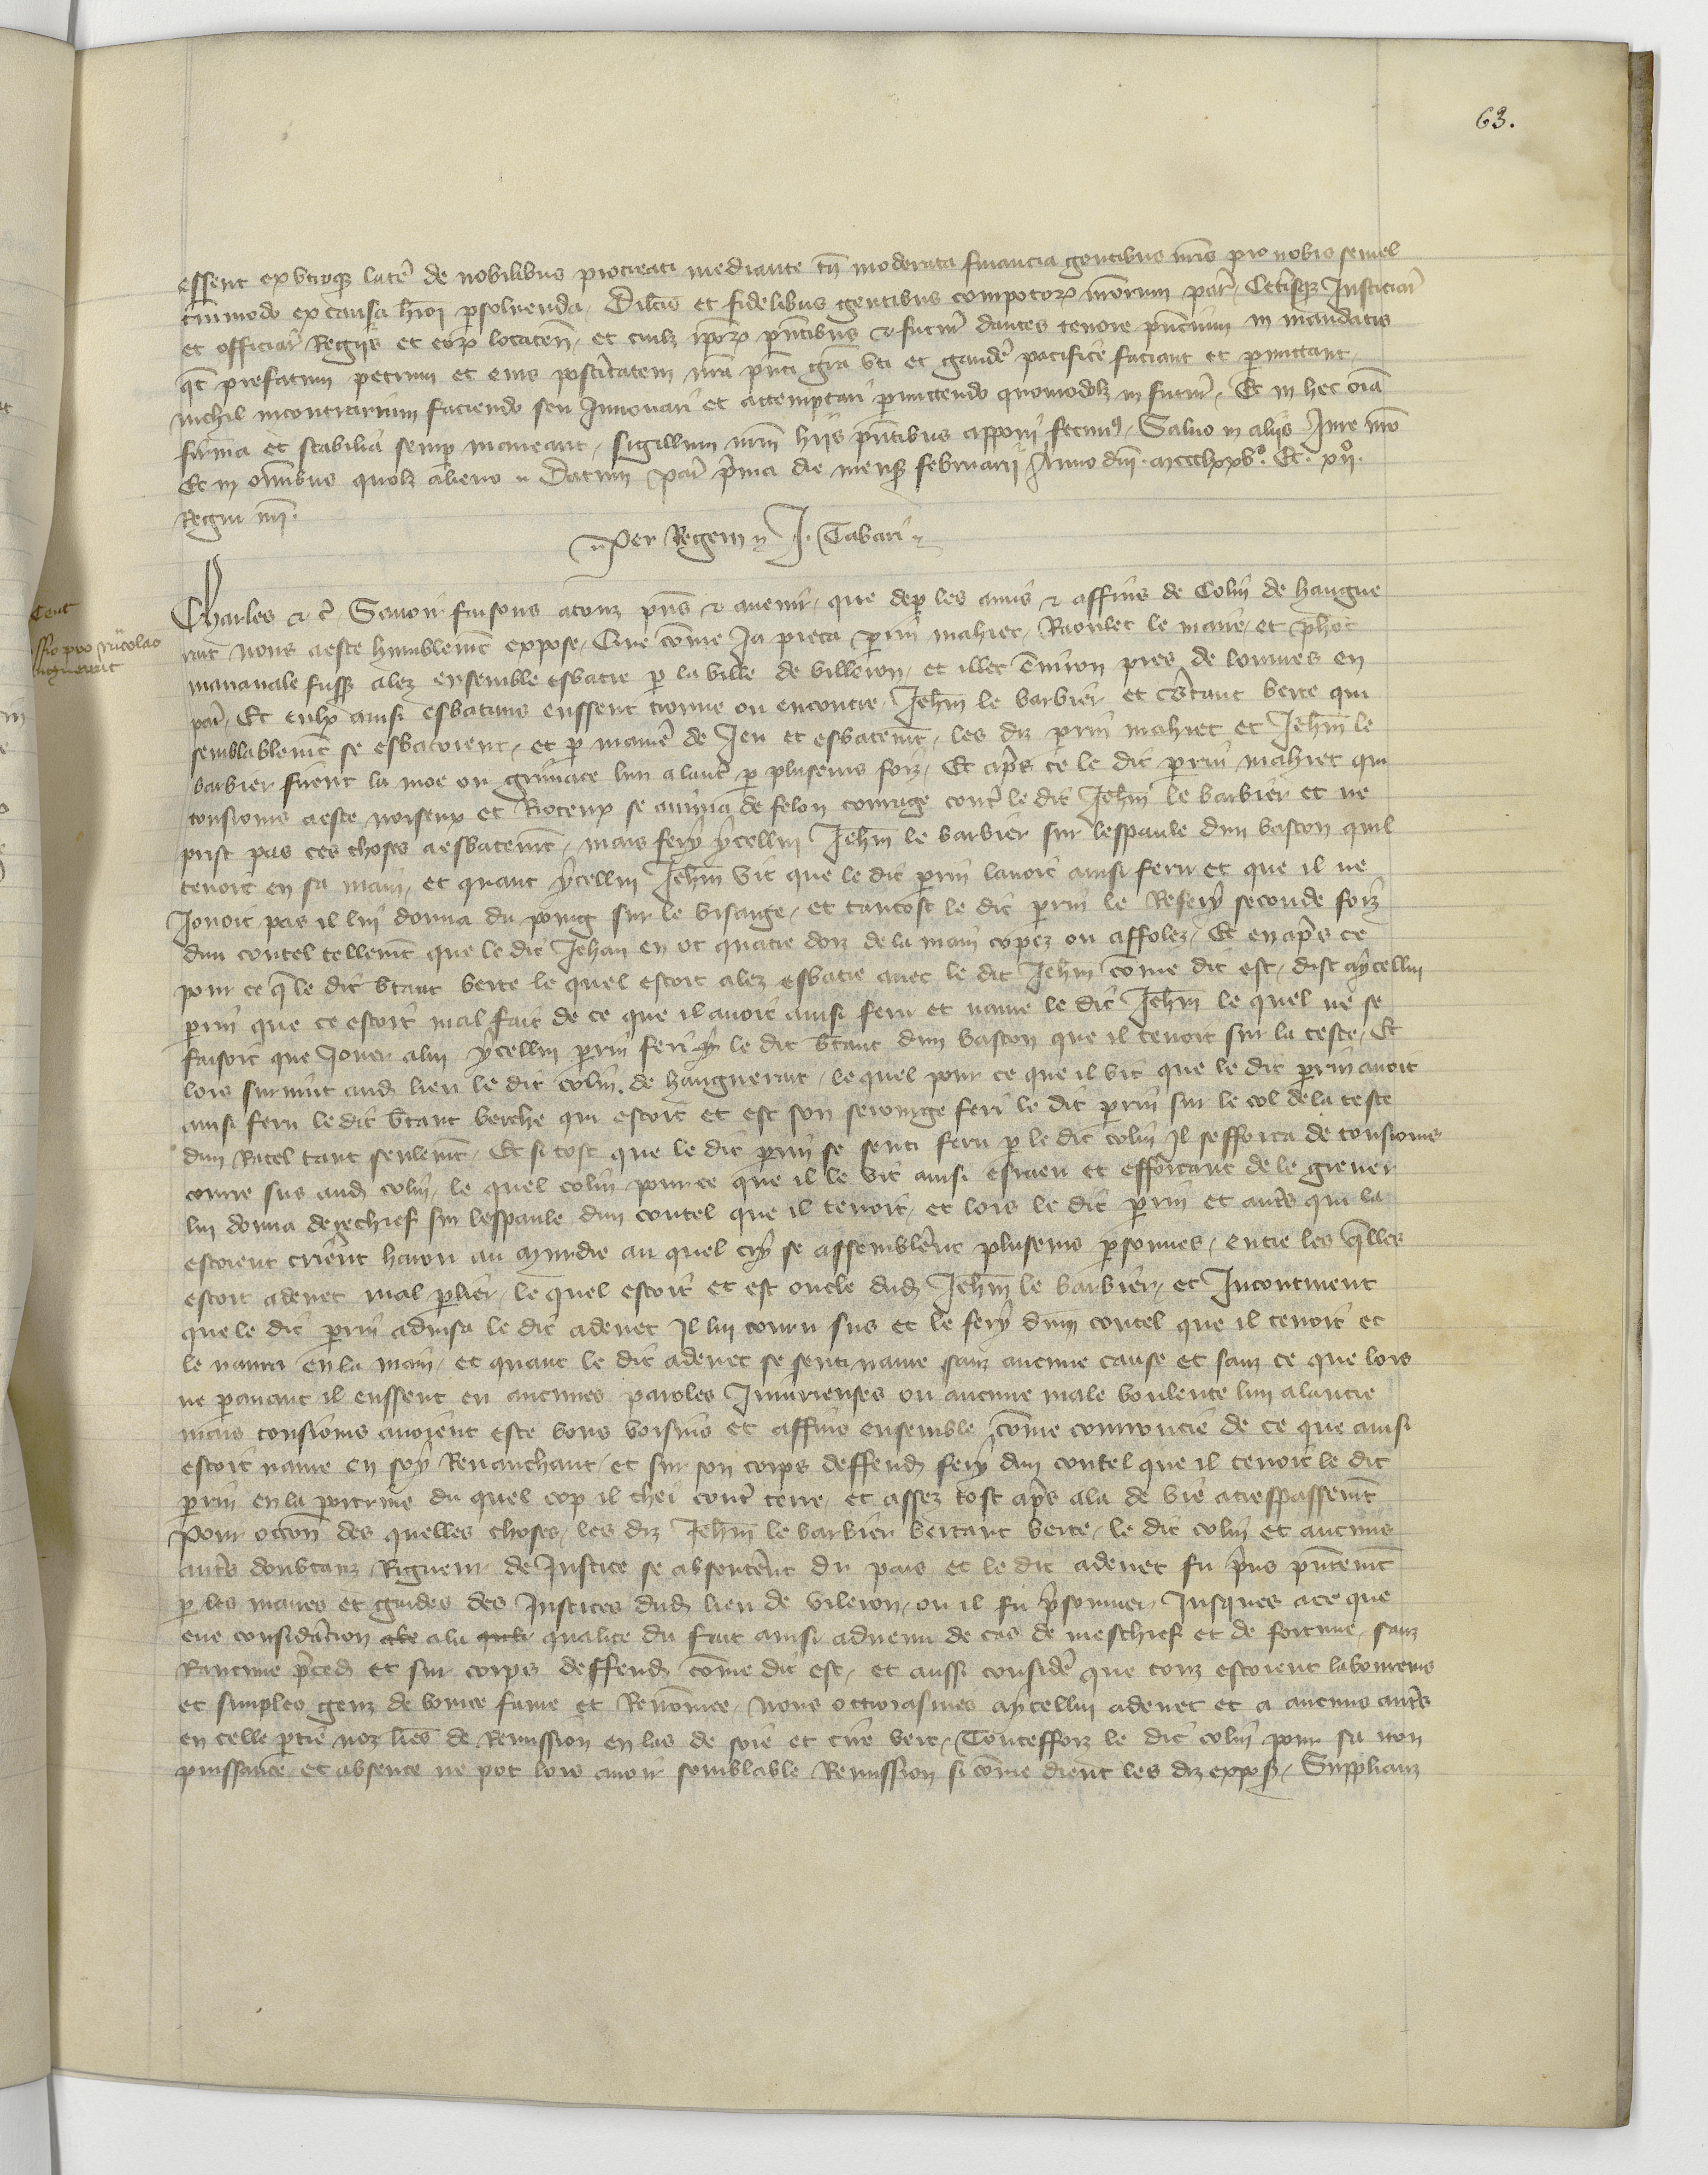 63.
essent ex utroque latere de nobilibus procreati mediante tn moderata financia gentibus nris pro nobis semel
tmmodo ex causa hmoi psolvenda. Dilcis et fidelibus gentibus compotorum nrorum par. Cetisque Justiciar
et officiar Regiis et eorum locaten. et cuilz iporum pntibus et futur dantes tenore pncium in mandatis
qt prefatum petrum et eius posteritatem nra pnti gra uti et gaudere pacifice faciant et pmittant.
nichil incontrarium faciendo seu Innovari et attemptari pmittendo quomodolz in futur. Et ut hec oia
firma et stabilia semp maneant, sigillum nrm hiis pntibus apponi fecimus. Salvo in aliis Jure nro
Et in omnibus quolz alieno. Datum par prima die mensis februarii Anno dni. mccclxxvo. Et. xiio.
Regni nri.
Per Regem J. Tabari
Charles etc. Savoir faisons a touz pns et avenir, que de p les amis et affins de Colin de haugue
rat nous a este humblemt expose, Que come Ja pieca prin mahiet, Raoulet le maire, et phot
mananale fussent alez ensemble esbatre p la ville de villeron, et illec environ pres de louvres en
par. Et eulx ainsi esbatans eussent trouve ou encontre, Jehm le barbier et btaut berte qui
semblablemt se esbatoient, et p maniere de Jeu et esbatemt, les diz prin mahiet et Jehm le
barbier firent la moe ou grimace lun a lautre p pluseurs foiz, Et apres ce le dit prin mahiet qui
tousiours a este noiseux et Rioteux se anima de felon courage contre le dit Jehm le barbier et ne
prist pas ces choses a esbatemt, mais fery ycellui Jehm le barbier sur lespaule dun baston quil
tenoit en sa main, et quant ycellui Jehm vit que le dit prin lavoit ainsi feru et que il ne
Jouoit pas il lui donna du poing sur le visaige, et tantost le dit prin le Refery seconde foiz
dun coutel tellemt que le dit Jehan en ot quatre doiz de la main copez ou affolez, Et en apres ce
pour ce q le dit btaut berte le quel estoit alez esbatre avec le dit Jehm come dit est, dist a ycellui
prin que ce estoit mal fait de ce que il avoit ainsi feru et navre le dit Jehm le quel ne se
faisoit que Jouer a lui ycellui prin feri le dit btaut dun baston que il tenoit sur la teste, Et
lors survint aud lieu le dit colin de hauguerat, le quel pour ce que il vit que le dit prin avoit
ainsi feru le dit btaut berthe qui estoit et est son serourge feri le dit prin sur le col de la teste
dun Ratel tant seulemt, Et si tost que le dit prin se senti feru p le dit colin Il sefforca de tousiours
courre sus aud colin, le quel colin pour ce que il le vit ainsi esmeu et efforcant de le grever
lui donna derechief sur lespaule dun coutel que il tenoit, et lors le dit prin et autres qui la
estoient crierent harou au murdre au quel cry se assemblerent pluseurs psonnes, entre les qlles
estoit adenet mal plier, le quel estoit et est oncle dud Jehm le barbier, et Incontinent
que le dit prin advisa le dit adenet Il lui couru sus et le fery dun coutel que il tenoit et
le navra en la main, et quant le dit adenet se senti navre sanz aucune cause et sanz ce que lors
ne pavant il eussent eu aucunes paroles Iniurieuses ou aucune male voulente lun a lautre
mais tousiours avoient este bons voisins et affins ensemble come courroucie de ce que ainsi
estoit navre en soy Revanchant, et sur son corps deffend fery dun coutel que il tenoit le dit
prin en la poitrine du quel cop il chei contre terre, et assez tost apres ala de vie a trespassemt
Pour occon des quelles choses, les diz Jehm le barbier bertaut berte, le dit colin et aucuns
autres doubtanz Rigueur de Justice se absenterent du pais et le dit adenet fu prins pntemt
p les maires et gardes des Justices dud lieu de vileron, ou il fu prisonnier Jusques a ce que
eue consideracion a la qualite du fait ainsi advenu de cas de meschief et de fortune, sanz
Rancune preced et sur corps deffend come dit est, et aussi considere que touz estoient laboureurs
et simples genz de bonne fame et Renomee, nous ottroiasmes a ycellui adenet et a aucuns autres
en celle ptie noz lres de Remission en las de soie et cire vert, Toutesfoiz le dit colin pour sa non
puissance et absence ne pot lors avoir semblable Remission si come dient les diz expos, Supplianz